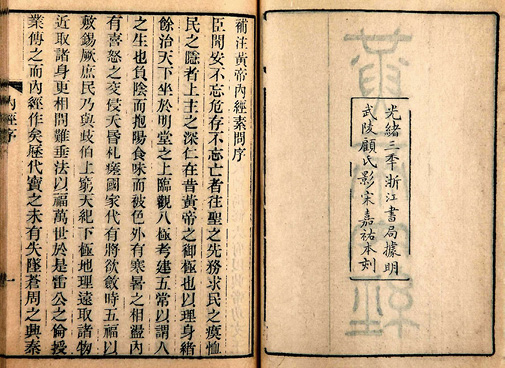 光緒三秊浙江書局據明
武陵顧氏影宋嘉祐本刻
補注黃帝內經素問序
臣聞安不忘危存不忘亡者往聖之先務求民之瘼恤
民之隱者上主之深仁在昔黃帝之御極也以理身緒
餘治天下坐於明堂之上臨觀八極考建五常以謂人
之生也負陰而抱陽食味而被色外有寒暑之相盪內
有喜怒之交侵夭昏札瘥國家代有將欲斂時五福以
敷錫厥庶民乃與歧伯上窮天紀下極地理遠取諸物
近取諸身更相問難垂法以福萬世於是雷公之倫授
業傳之而內經作矣歷代寶之未有失墜蒼周之興秦
內經序
一